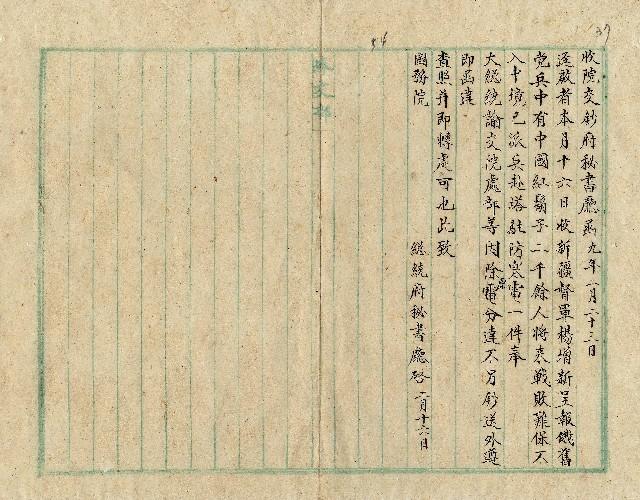 37
54
收院交鈔府秘書廳函九年二月二十三日
逕啟者本月十六日收新疆督軍楊增新呈報俄舊
党兵中有中國紅鬍子二千餘人將來戰敗難保不
入中境已派兵赴塔駐防寒電一件奉
大總統諭交院處部等因除電分達不另鈔送外尊
即函達
查照并即轉處可也此致
國務院
總統府秘書廳啓二月十六日
收文